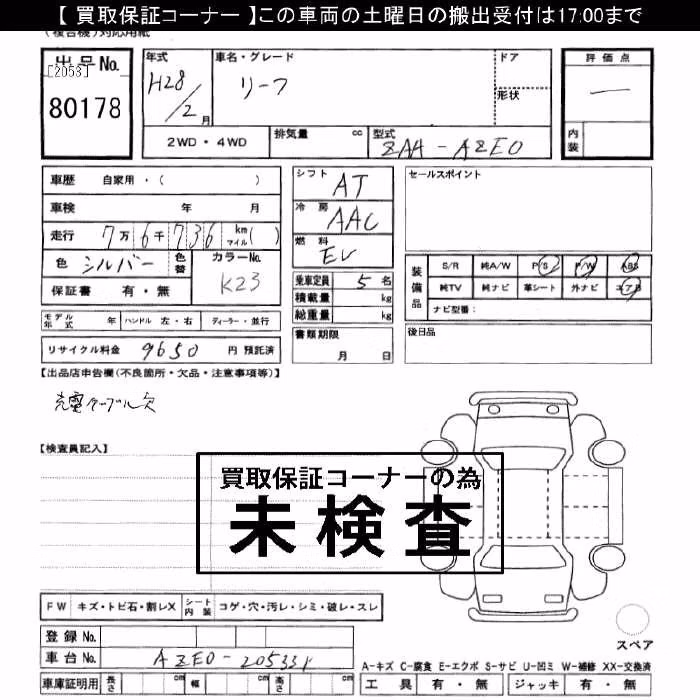 【 買取保証コーナー 】この車両の土曜日の搬出受付は17:00まで
(複合機)対応用紙
出品No.
[2053]
80178
年式
H28/2月
車名・グレード
リーフ
ドア
形状
2WD・4WD
排気量 cc
型式
ZAA-AZE0
評価点
—
内装
車歴 自家用・( )
車検 年 月
走行 7万6千736 km マイル( )
色 シルバー 色替
カラーNo. K23
保証書 有・無
モデル年式 年 ハンドル 左・右 ディーラー・並行
リサイクル料金 9650 円 預託済
シフト AT
冷房 AAC
燃料 EV
乗車定員 5 名
積載量 kg
総重量 kg
書類期限
月 日
セールスポイント
装備品
S/R 純A/W P/S P/W ABS
純TV 純ナビ 革シート 外ナビ エアB
ナビ型番:
後日品
【出品店申告欄(不良箇所・欠品・注意事項等)】
充電ケーブル欠
【検査員記入】
買取保証コーナーの為
未検査
FW キズ・トビ石・割レX シート内装 コゲ・穴・汚レ・シミ・破レ・スレ
登録No.
車台No. AZE0-205331
車庫証明用 長さ cm 幅 cm 高さ cm
スペア
A-キズ C-腐食 E-エクボ S-サビ U-凹ミ W-補修 XX-交換済
工具 有・無 ジャッキ 有・無